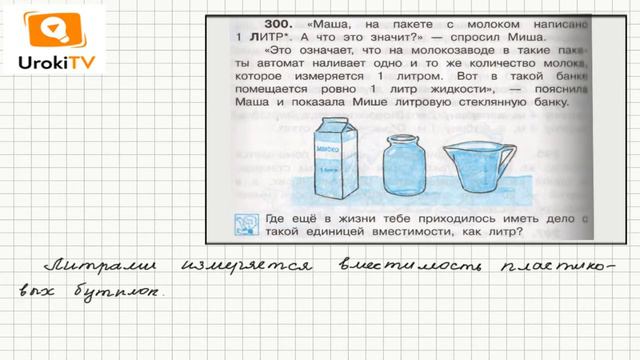 UrokiTV
300. «Маша, на пакете с молоком написано
1 ЛИТР". А что это значит?» — спросил Миша.
«Это означает, что на молокозаводе в такие паке-
ты автомат наливает одно и то же количество молока,
которое измеряется 1 литром. Вот в такой банке
помещается ровно 1 литр жидкости», — пояснила
Маша и показала Мише литровую стеклянную банку.
МОЛОКО
1 литр
Где ещё в жизни тебе приходилось иметь дело с
такой единицей вместимости, как литр?
Литрами измеряется вместимость пластико-
вых бутылок.